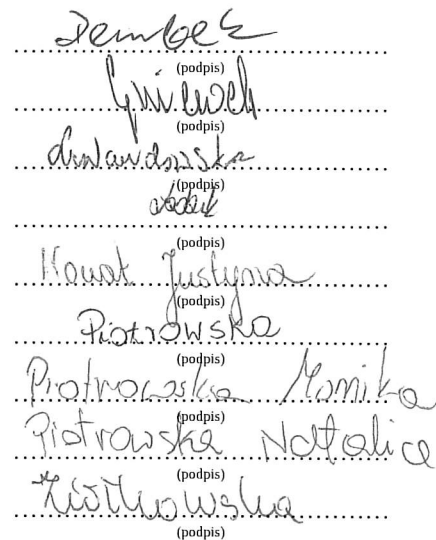 Dembek
(podpis)
Gniewek
(podpis)
Lewandowska
(podpis)
(podpis)
Nowak Justyna
(podpis)
Piotrowska
(podpis)
Piotrowska Monika
(podpis)
Piotrowska Natalia
(podpis)
Ziółkowska
(podpis)